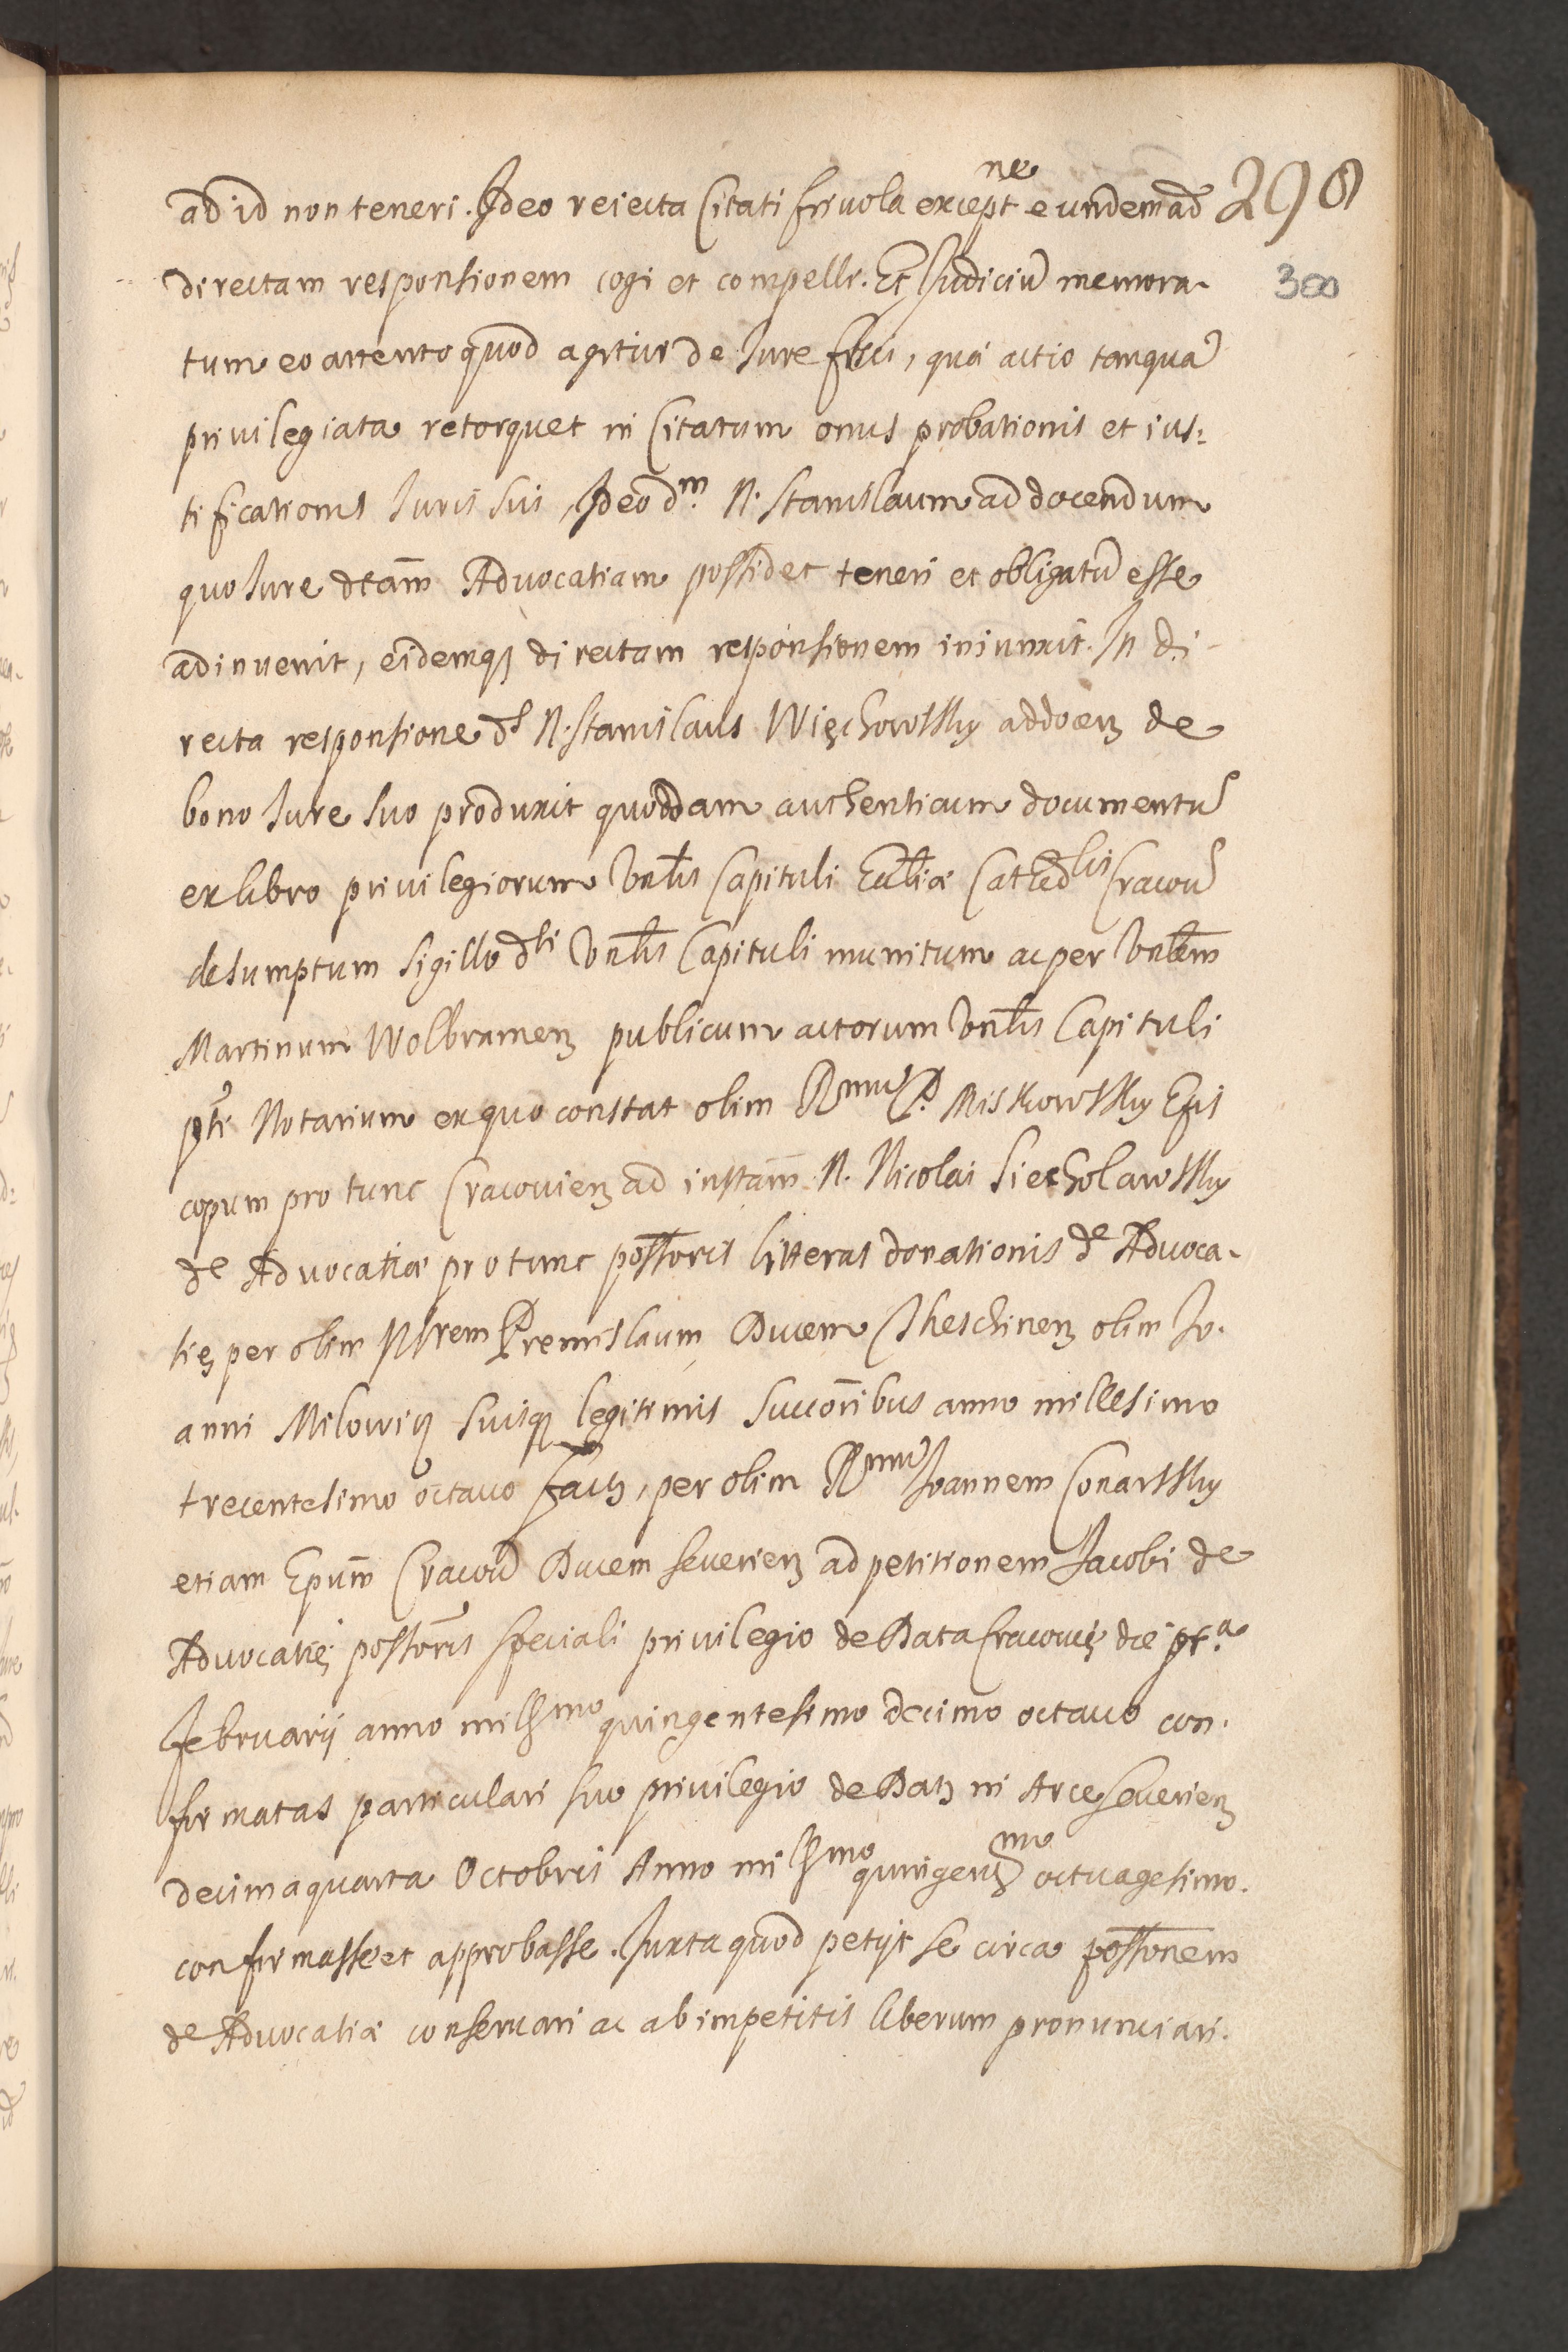 ad id non teneri. Ideo reiecta Citati frivola except<sup>ne</sup> eundem ad 298
directam responsionem cogi et compelli. Et Iudiciũ memora-
300
tum eo attento quod agitur de Iure fisci, quæ actio tanquã
privilegiata retorquet in Citatum onus probationis et ius:
tificationis Iuris sui, Ideo d<sup>m</sup>. N. Stanislaum ad docendum
quo Iure dctam̃ Advocatiam possidet teneri et obligatũ esse
adinvenit, eidemq₃ directam responsionem iniunxit. In di-
recta responsione ds N. Stanislaus Więchowsky ad docen₃ de
bono Iure suo produxit quoddam authenticum documentũ
ex libro privilegiorum Vnlis Capituli Eccliæ Cathed<sup>lis</sup> Cracoũ
desumptum sigillo d<sup>ti</sup> Vnlis Capituli munitum ac per Vnlem
Martinum Wolbramen₃ publicum actorum Vnlis Capituli
pti Notarium ex quo constat olim R<sup>mum</sup> P. Miskowsky Epis
copum pro tunc Cracovien₃ ad instam̃ N. Nicolai Siecholawsky
de Advocatiæ pro tunc possoris litteras donationis de Advoca-
tię per olim Illrem Premislaum Ducem Theschinen₃ olim Io-
anni Milowic₃ suisq₃ legitimis succoribus anno millesimo
trecentesimo octavo fact₃, per olim R<sup>mum</sup> Ioannem Conarsky
etiam Epum̃ Cracoũ Ducem Severien₃ ad petitionem Iacobi de
Advocatię possoris speciali privilegio de Data Cracovię die pr.<sup>a</sup>
februarij anno mill<sup>mo</sup> quingentesimo decimo octavo con-
firmatas particulari suo privilegio de Dat₃ in Arce Severien₃
decima quarta Octobris Anno mill<sup>mo</sup> quingent<sup>mo</sup> octuagesimo.
confirmasse et approbasse. Iuxta quod petijt se circa possonem
de Advocatiæ conservari ac ab impetitis liberum pronunciari.